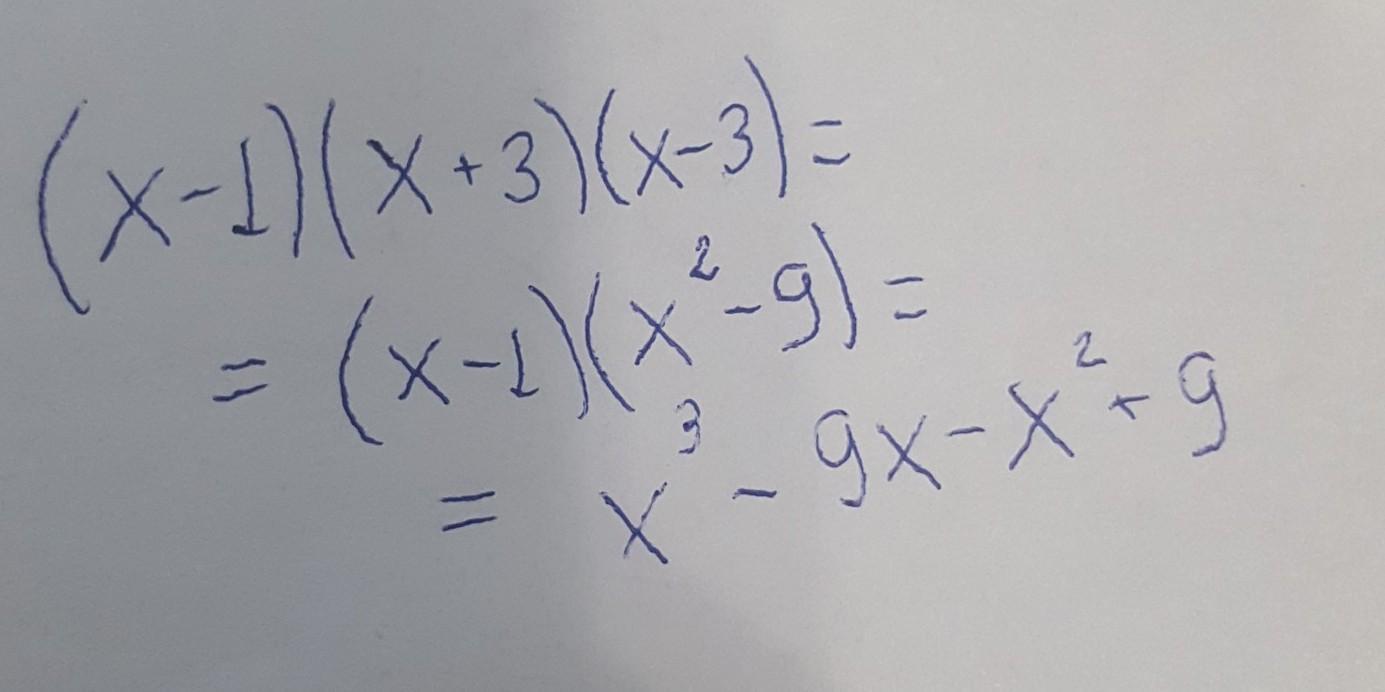 (x-1)(x+3)(x-3)=
=(x-1)(x²-9)=
= x³ - 9x - x² + 9